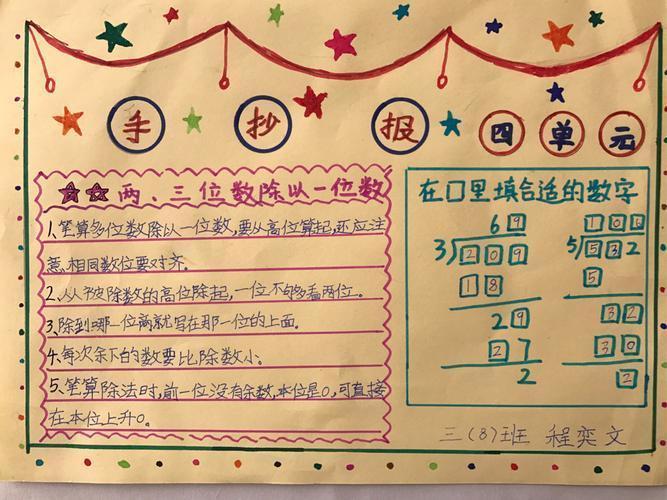 手 抄 报 四 单 元
两、三位数除以一位数
1.笔算多位数除以一位数,要从高位算起,还应注
意,相同数位要对齐。
2.从被除数的高位除起,一位不够多看两位。
3.除到哪一位商就写在那一位的上面。
4.每次余下的数要比除数小。
5.笔算除法时,前一位没有余数,本位是0,可直接
在本位上升0。
在□里填合适的数字
69
3)209
18
29
27
2
106
5)532
5
32
30
2
三(8)班 程奕文